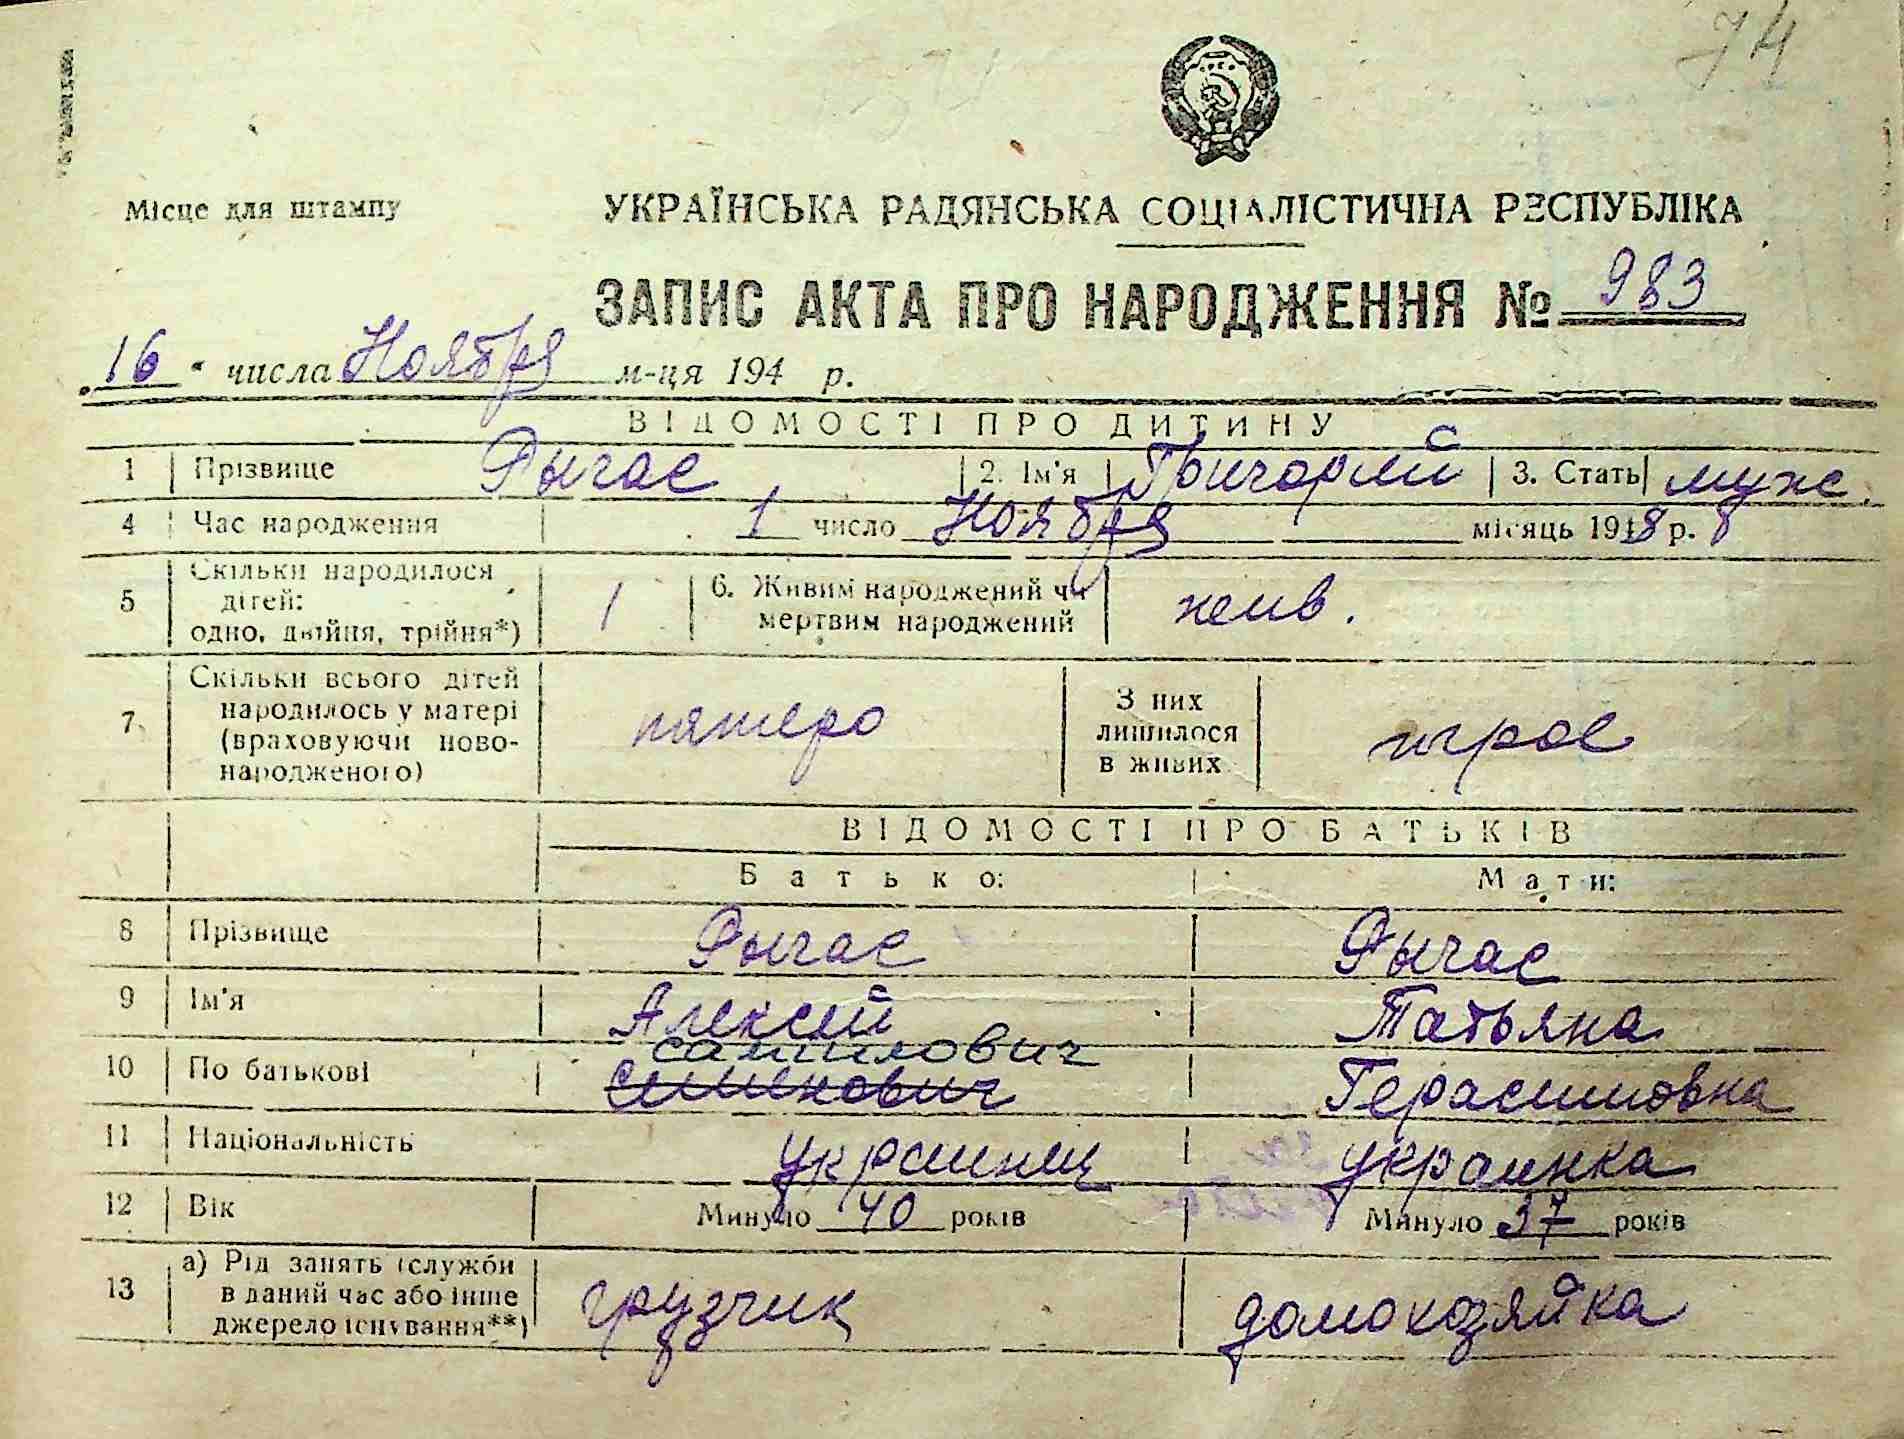 74
Місце для штампу
УКРАЇНСЬКА РАДЯНСЬКА СОЦІАЛІСТИЧНА РЕСПУБЛІКА
ЗАПИС АКТА ПРО НАРОДЖЕННЯ № 983
„16“ числа Ноября м-ця 194 р.
ВІДОМОСТІ ПРО ДИТИНУ
1 Прізвище Рычас 2. Ім'я 3. Стать муж.
4 Час народження 1 число Ноября місяць 1948 р.
5 Скільки народилося дітей: одно, двійня, трійня*) 1 6. Живим народжений чи мертвим народжений жив.
7 Скільки всього дітей народилось у матері (враховуючи новонародженого) пятеро З них лишилося в живих трое
ВІДОМОСТІ ПРО БАТЬКІВ
Батько: Мати:
8 Прізвище Рычас Рычас
9 Ім'я Алексей Татьяна
10 По батькові Семенович Герасимовна
11 Національність украинец украинка
12 Вік Минуло 40 років Минуло 37 років
13 а) Рід занять (служби в даний час або інше джерело існування**) грузчик домохозяйка